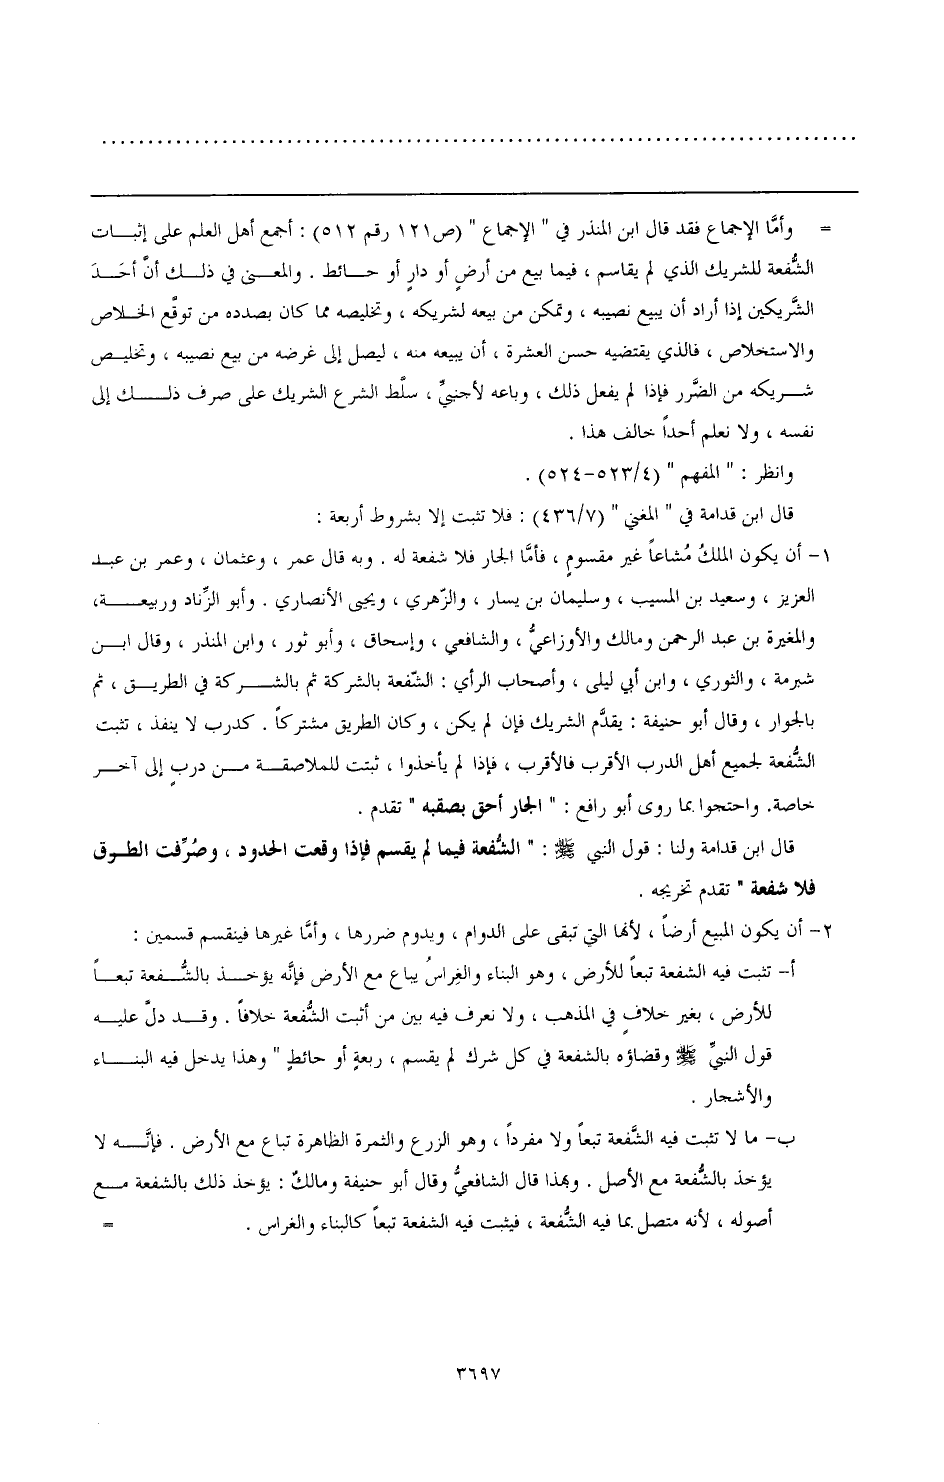 = وأمَّا الإجماع فقد قال ابن المنذر في " الإجماع " (ص١٢١ رقم ٥١٢) : أجمع أهل العلم على إثبات
الشُّفعة للشريك الذي لم يقاسم ، فيما بيع من أرضٍ أو دارٍ أو حائط . والمعنى في ذلك أنَّ أحَدَ
الشَّريكين إذا أراد أن يبيع نصيبه ، وتمكن من بيعه لشريكه ، وتخليصه مما كان بصدده من توقّع الخلاص
والاستخلاص ، فالذي يقتضيه حسن العشرة ، أن يبيعه منه ، ليصل إلى غرضه من بيع نصيبه ، وتخليص
شريكه من الضَّرر فإذا لم يفعل ذلك ، وباعه لأجنبيٍّ ، سلَّط الشرع الشريك على صرف ذلك إلى
نفسه ، ولا نعلم أحداً خالف هذا .
وانظر : " المفهم " (٥٢٣/٤-٥٢٤) .
قال ابن قدامة في " المغني " (٤٣٦/٧) : فلا تثبت إلا بشروط أربعة :
١- أن يكون الملكُ مُشاعاً غير مقسومٍ ، فأمَّا الجار فلا شفعة له . وبه قال عمر ، وعثمان ، وعمر بن عبد
العزيز ، وسعيد بن المسيب ، وسليمان بن يسار ، والزّهري ، ويحيى الأنصاري . وأبو الزِّناد وربيعة،
والمغيرة بن عبد الرحمن ومالك والأوزاعيُّ ، والشافعي ، وإسحاق ، وأبو ثور ، وابن المنذر ، وقال ابن
شبرمة ، والثوري ، وابن أبي ليلى ، وأصحاب الرأي : الشّفعة بالشركة ثم بالشركة في الطريق ، ثم
بالجوار ، وقال أبو حنيفة : يقدَّم الشريك فإن لم يكن ، وكان الطريق مشتركاً . كدرب لا ينفذ ، تثبت
الشُّفعة لجميع أهل الدرب الأقرب فالأقرب ، فإذا لم يأخذوا ، ثبتت للملاصقة من دربٍ إلى آخر
خاصة. واحتجوا بما روى أبو رافع : " الجار أحق بصقبه " تقدم .
قال ابن قدامة ولنا : قول النبي ﷺ : " الشُّفعة فيما لم يقسم فإذا وقعت الحدود ، وصُرِّفت الطرق
فلا شفعة " تقدم تخريجه .
٢- أن يكون المبيع أرضاً ، لأنها التي تبقى على الدوام ، ويدوم ضررها ، وأمَّا غيرها فينقسم قسمين :
أ- تثبت فيه الشفعة تبعاً للأرض ، وهو البناء والغِراسُ يباع مع الأرض فإنَّه يؤخذ بالشُّفعة تبعاً
للأرض ، بغير خلافٍ في المذهب ، ولا نعرف فيه بين من أثبت الشُّفعة خلافاً . وقد دلَّ عليه
قول النبيِّ ﷺ وقضاؤه بالشفعة في كل شرك لم يقسم ، ربعةٍ أو حائطٍ " وهذا يدخل فيه البناء
والأشجار .
ب- ما لا تثبت فيه الشَّفعة تبعاً ولا مفرداً ، وهو الزرع والثمرة الظاهرة تباع مع الأرض . فإنَّه لا
يؤخذ بالشُّفعة مع الأصل . وبهذا قال الشافعيُّ وقال أبو حنيفة ومالكٌ : يؤخذ ذلك بالشفعة مع
أصوله ، لأنه متصل بما فيه الشُّفعة ، فيثبت فيه الشفعة تبعاً كالبناء والغراس . =
٣٦٩٧